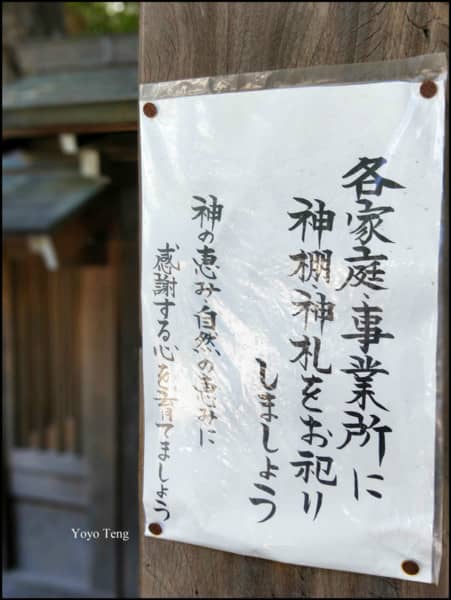 各家庭・事業所に
神棚・神札をお祀り
しましょう
神の恵み・自然の恵みに
感謝する心を育てましょう
Yoyo Teng